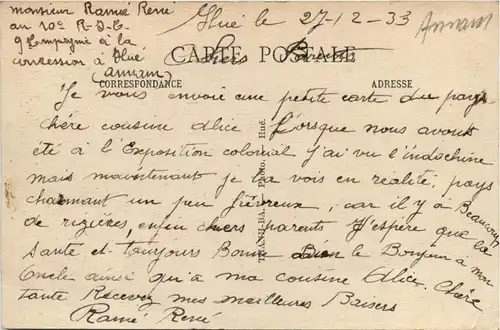 monsieur Ramé René
au 10e R.I.C.
9 Compagnie à la
concession à Hué
(annam)
Hué le 27-12-33
Annam
CARTE POSTALE
Chers Parents
CORRESPONDANCE
ADRESSE
Je vous envoie une petite carte du pays
chére cousine Alice Lorsque nous avons
été à l'Exposition colonial j'ai vu l'indochine
mais maintenant je la vois en réalité, pays
charmant un peu fiévreux, car il y à Beaucoup
de rizières, enfin chers parents J'espère que la
santé et toujours Bonne Bien le Bonjour à mon
Oncle ainsi qu'a ma cousine Alice. Chère
tante Recevez mes meilleures Baisers
Ramé René
Photo. Hué.